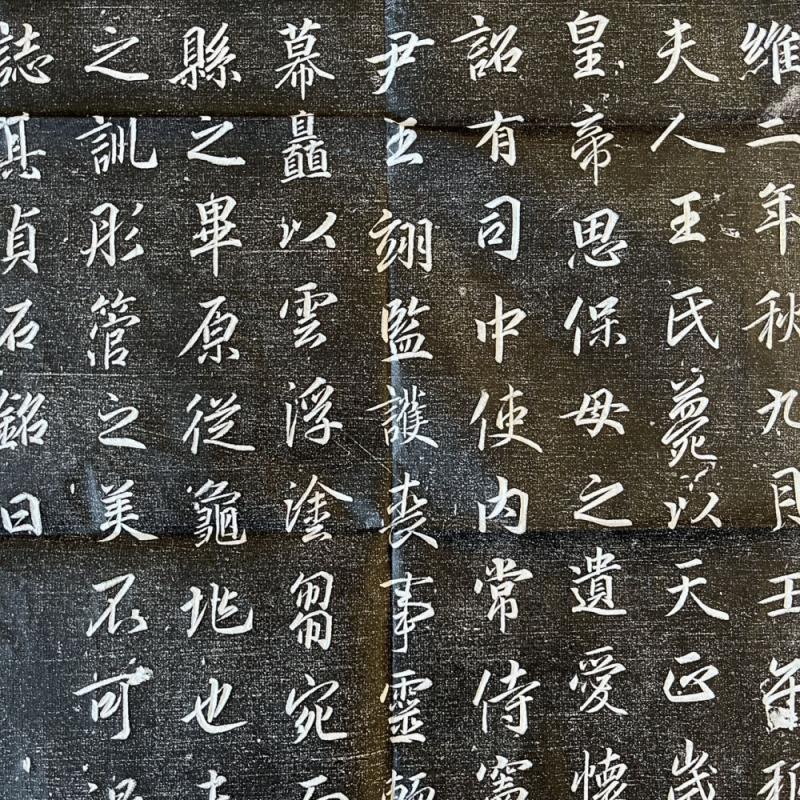 維二年秋九月壬午
夫人王氏薨以天正歲
皇帝思保母之遺愛懷
詔有司中使內常侍竇
尹王翊監護喪事靈輀
幕矗以雲浮塗芻宛而
縣之畢原從龜兆也
之訓彤管之美不可
誌其貞石銘曰